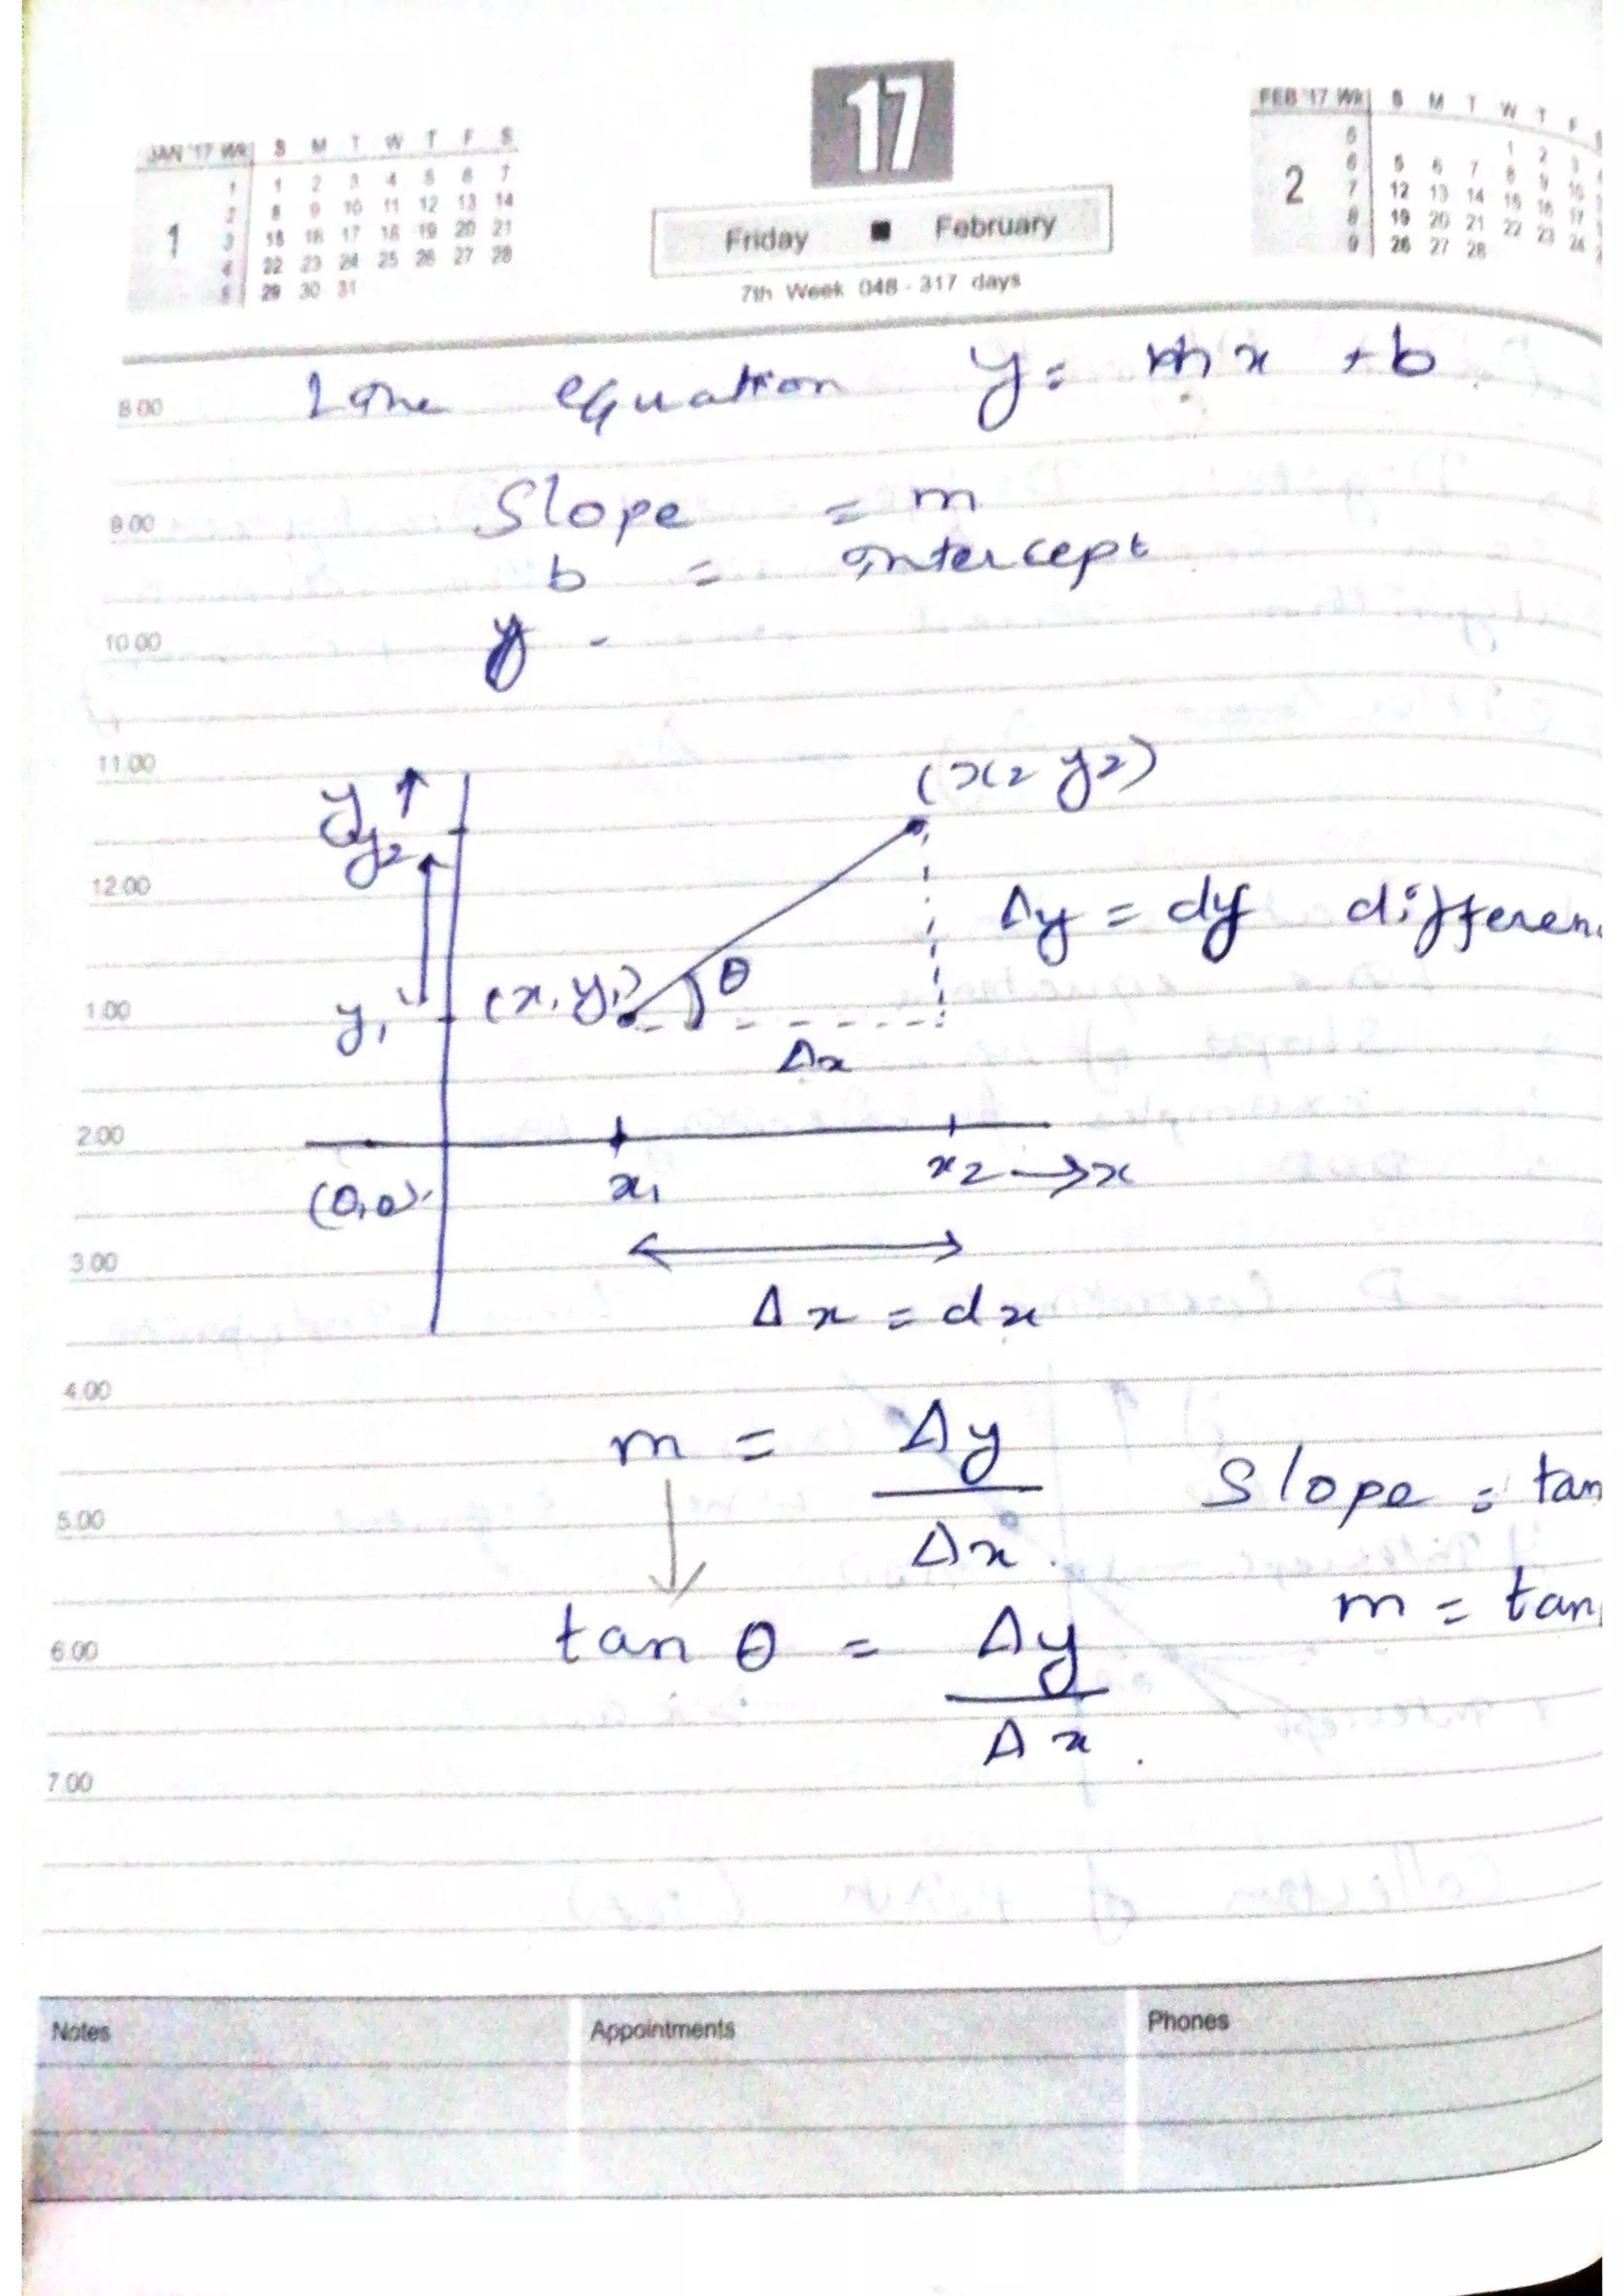 17
Friday ■ February
7th Week 048 - 317 days
JAN '17 Wk S M T W T F S
1
1 1 2 3 4 5 6 7
2 8 9 10 11 12 13 14
3 15 16 17 18 19 20 21
4 22 23 24 25 26 27 28
5 29 30 31
FEB '17 Wk S M T W T F
2
1 2 3
6 5 6 7 8 9 10
7 12 13 14 15 16 17
8 19 20 21 22 23 24
9 26 27 28
8.00 Line equation y = mx + b
9.00 Slope = m
b = intercept
10.00 y -
11.00
y ↑
(x2 y2)
y2
12.00
Δy = dy differen
θ
1.00 y1 (x1 y1)
Δx
2.00
(0,0) x1 x2 → x
3.00
Δx = dx
4.00
m = Δy / Δx
Slope = tan
5.00
m = tan
6.00 tan θ = Δy / Δx .
7.00
Notes Appointments Phones